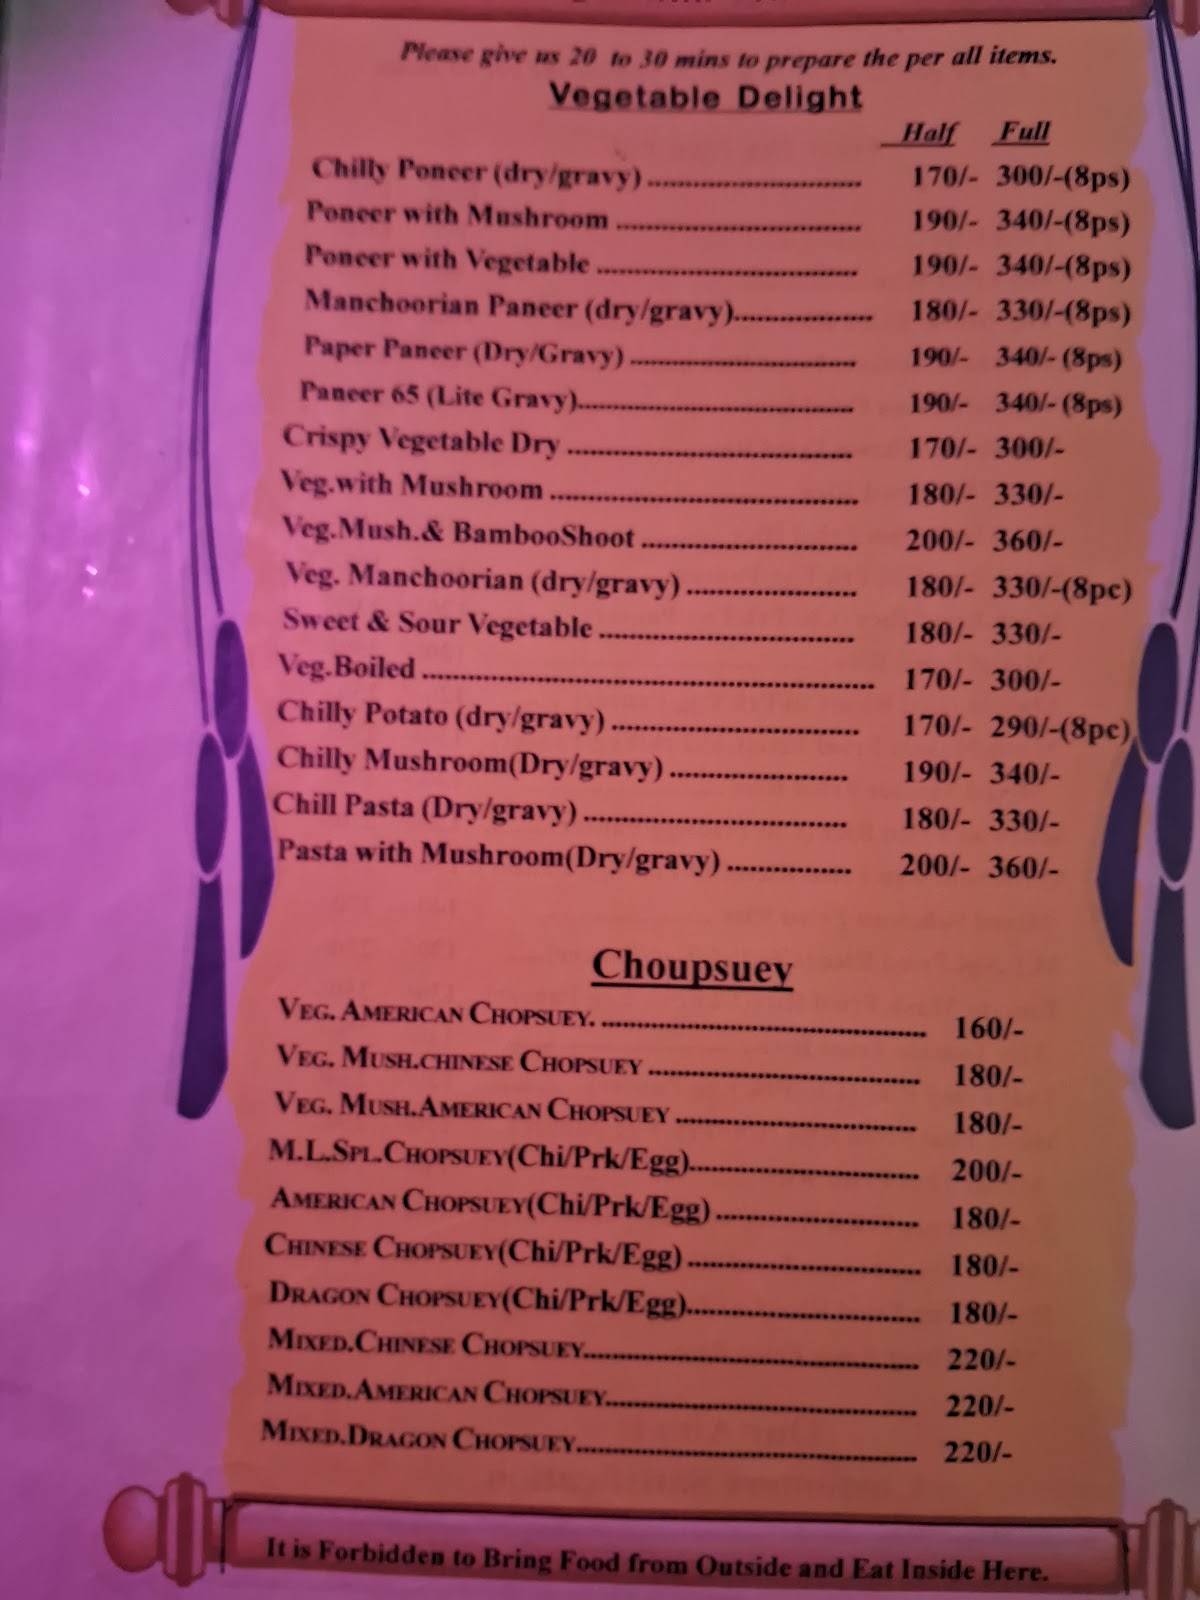 Please give us 20 to 30 mins to prepare the per all items.
Vegetable Delight
Half Full
Chilly Poneer (dry/gravy) 170/- 300/-(8ps)
Poneer with Mushroom 190/- 340/-(8ps)
Poneer with Vegetable 190/- 340/-(8ps)
Manchoorian Paneer (dry/gravy) 180/- 330/-(8ps)
Paper Paneer (Dry/Gravy) 190/- 340/- (8ps)
Paneer 65 (Lite Gravy) 190/- 340/- (8ps)
Crispy Vegetable Dry 170/- 300/-
Veg.with Mushroom 180/- 330/-
Veg.Mush.& BambooShoot 200/- 360/-
Veg. Manchoorian (dry/gravy) 180/- 330/-(8pc)
Sweet & Sour Vegetable 180/- 330/-
Veg.Boiled 170/- 300/-
Chilly Potato (dry/gravy) 170/- 290/-(8pc)
Chilly Mushroom(Dry/gravy) 190/- 340/-
Chill Pasta (Dry/gravy) 180/- 330/-
Pasta with Mushroom(Dry/gravy) 200/- 360/-
Choupsuey
VEG. AMERICAN CHOPSUEY. 160/-
VEG. MUSH.CHINESE CHOPSUEY 180/-
VEG. MUSH.AMERICAN CHOPSUEY 180/-
M.L.SPL.CHOPSUEY(Chi/Prk/Egg) 200/-
AMERICAN CHOPSUEY(Chi/Prk/Egg) 180/-
CHINESE CHOPSUEY(Chi/Prk/Egg) 180/-
DRAGON CHOPSUEY(Chi/Prk/Egg) 180/-
MIXED.CHINESE CHOPSUEY 220/-
MIXED.AMERICAN CHOPSUEY 220/-
MIXED.DRAGON CHOPSUEY 220/-
It is Forbidden to Bring Food from Outside and Eat Inside Here.